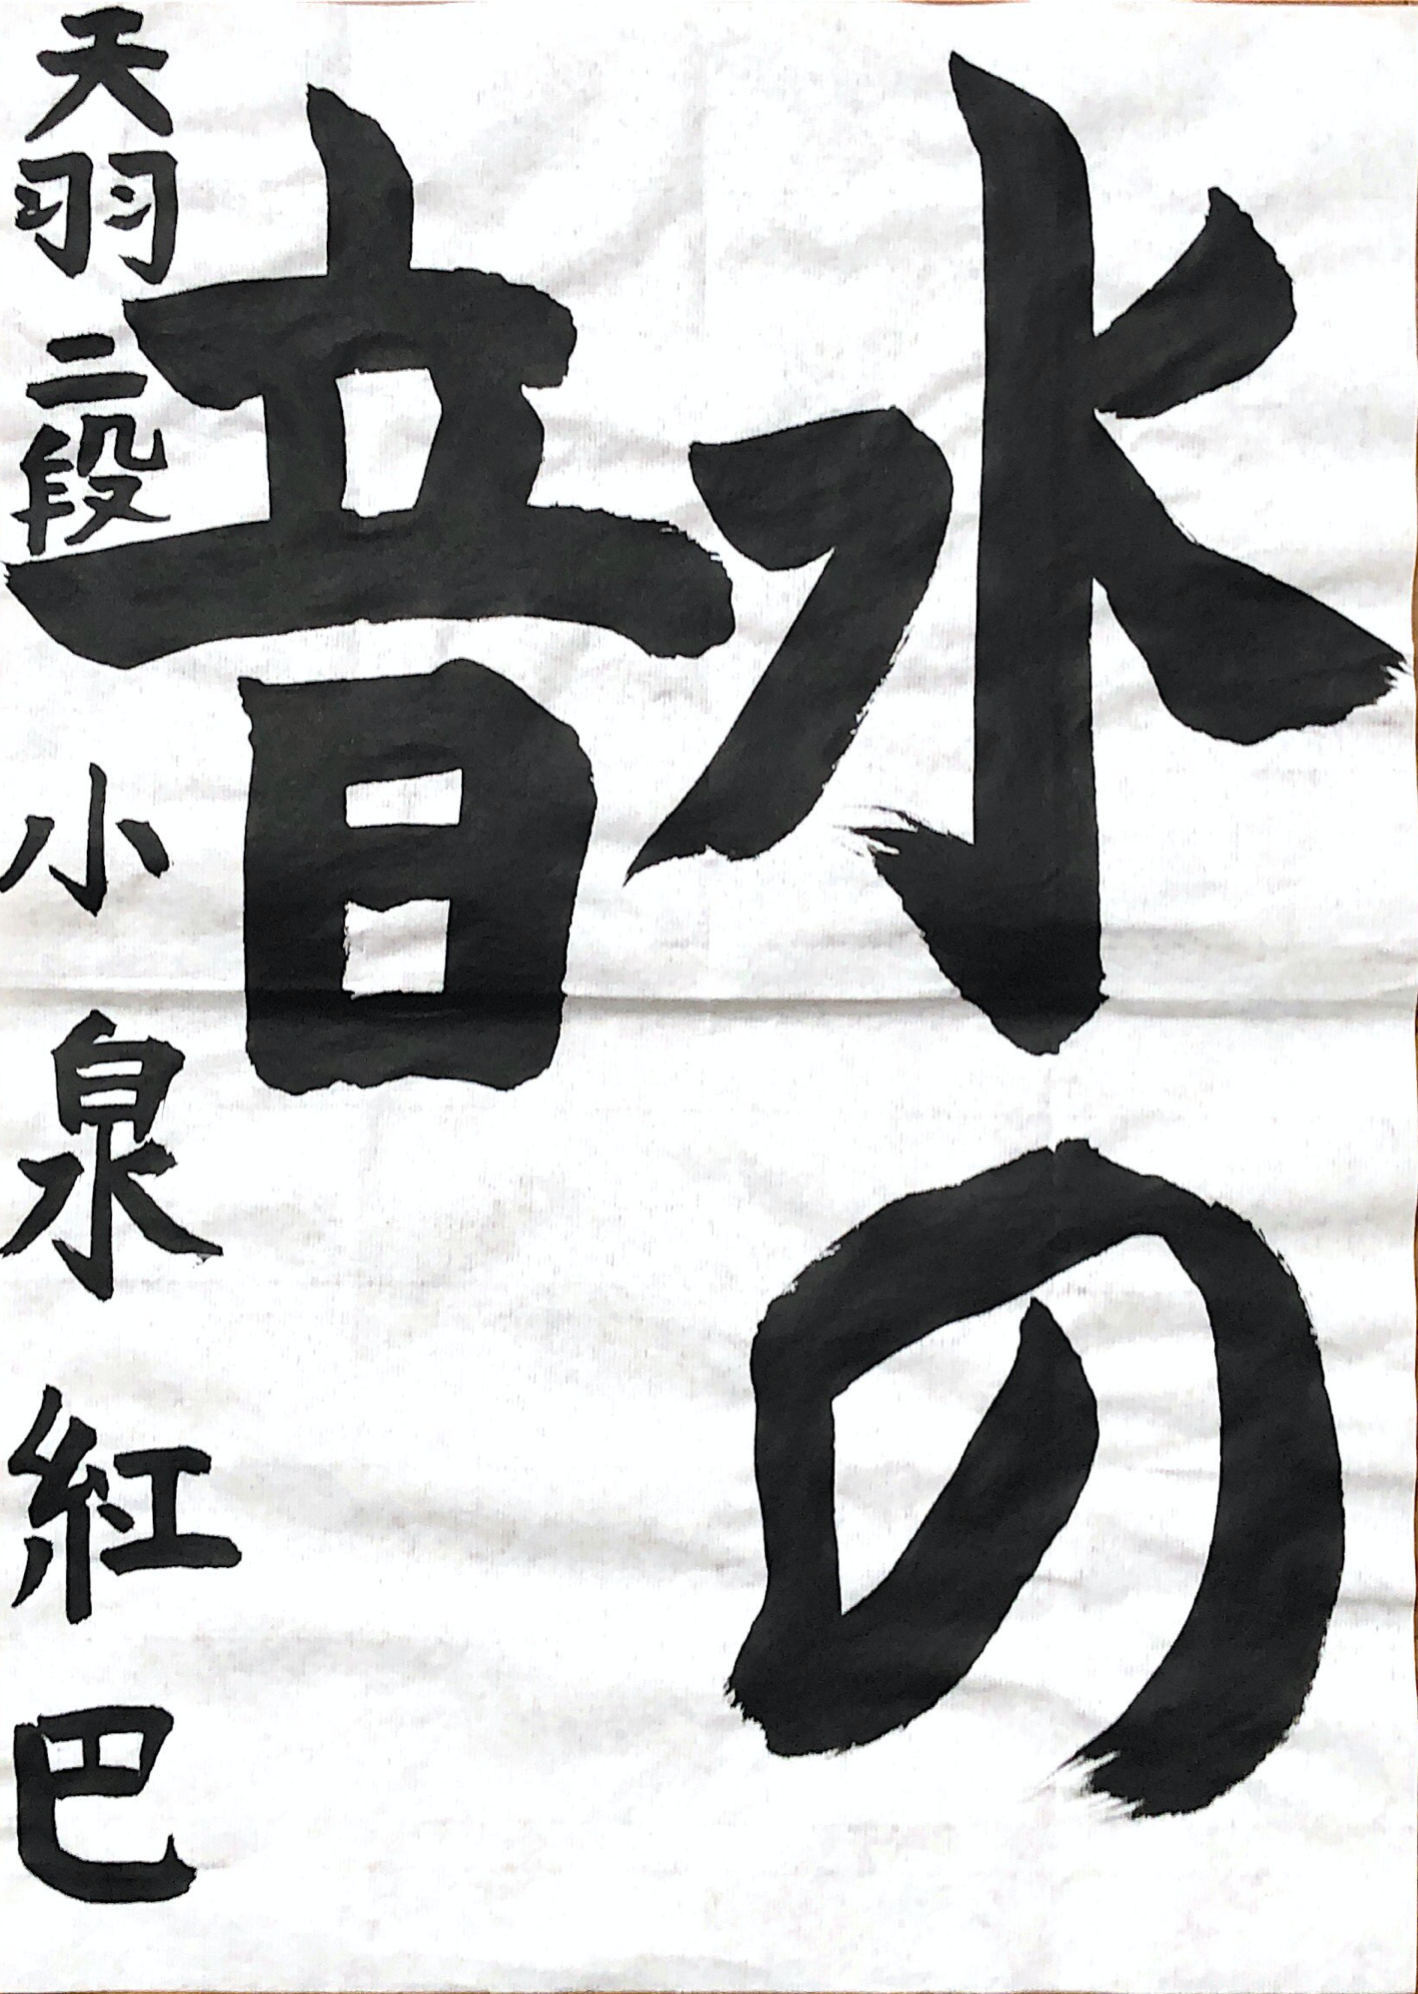 水の
音
天羽 二段 小泉紅巴